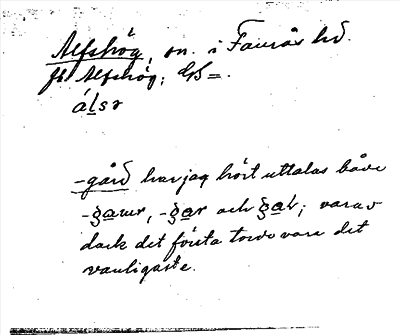 Alfshög, sn. i Faurås hd.
fr Alfshög; GS =.
álsr
-gård har jag hört uttalas både
-gaur, -gar och gat; varav
dock det första torde vara det
vanligaste.